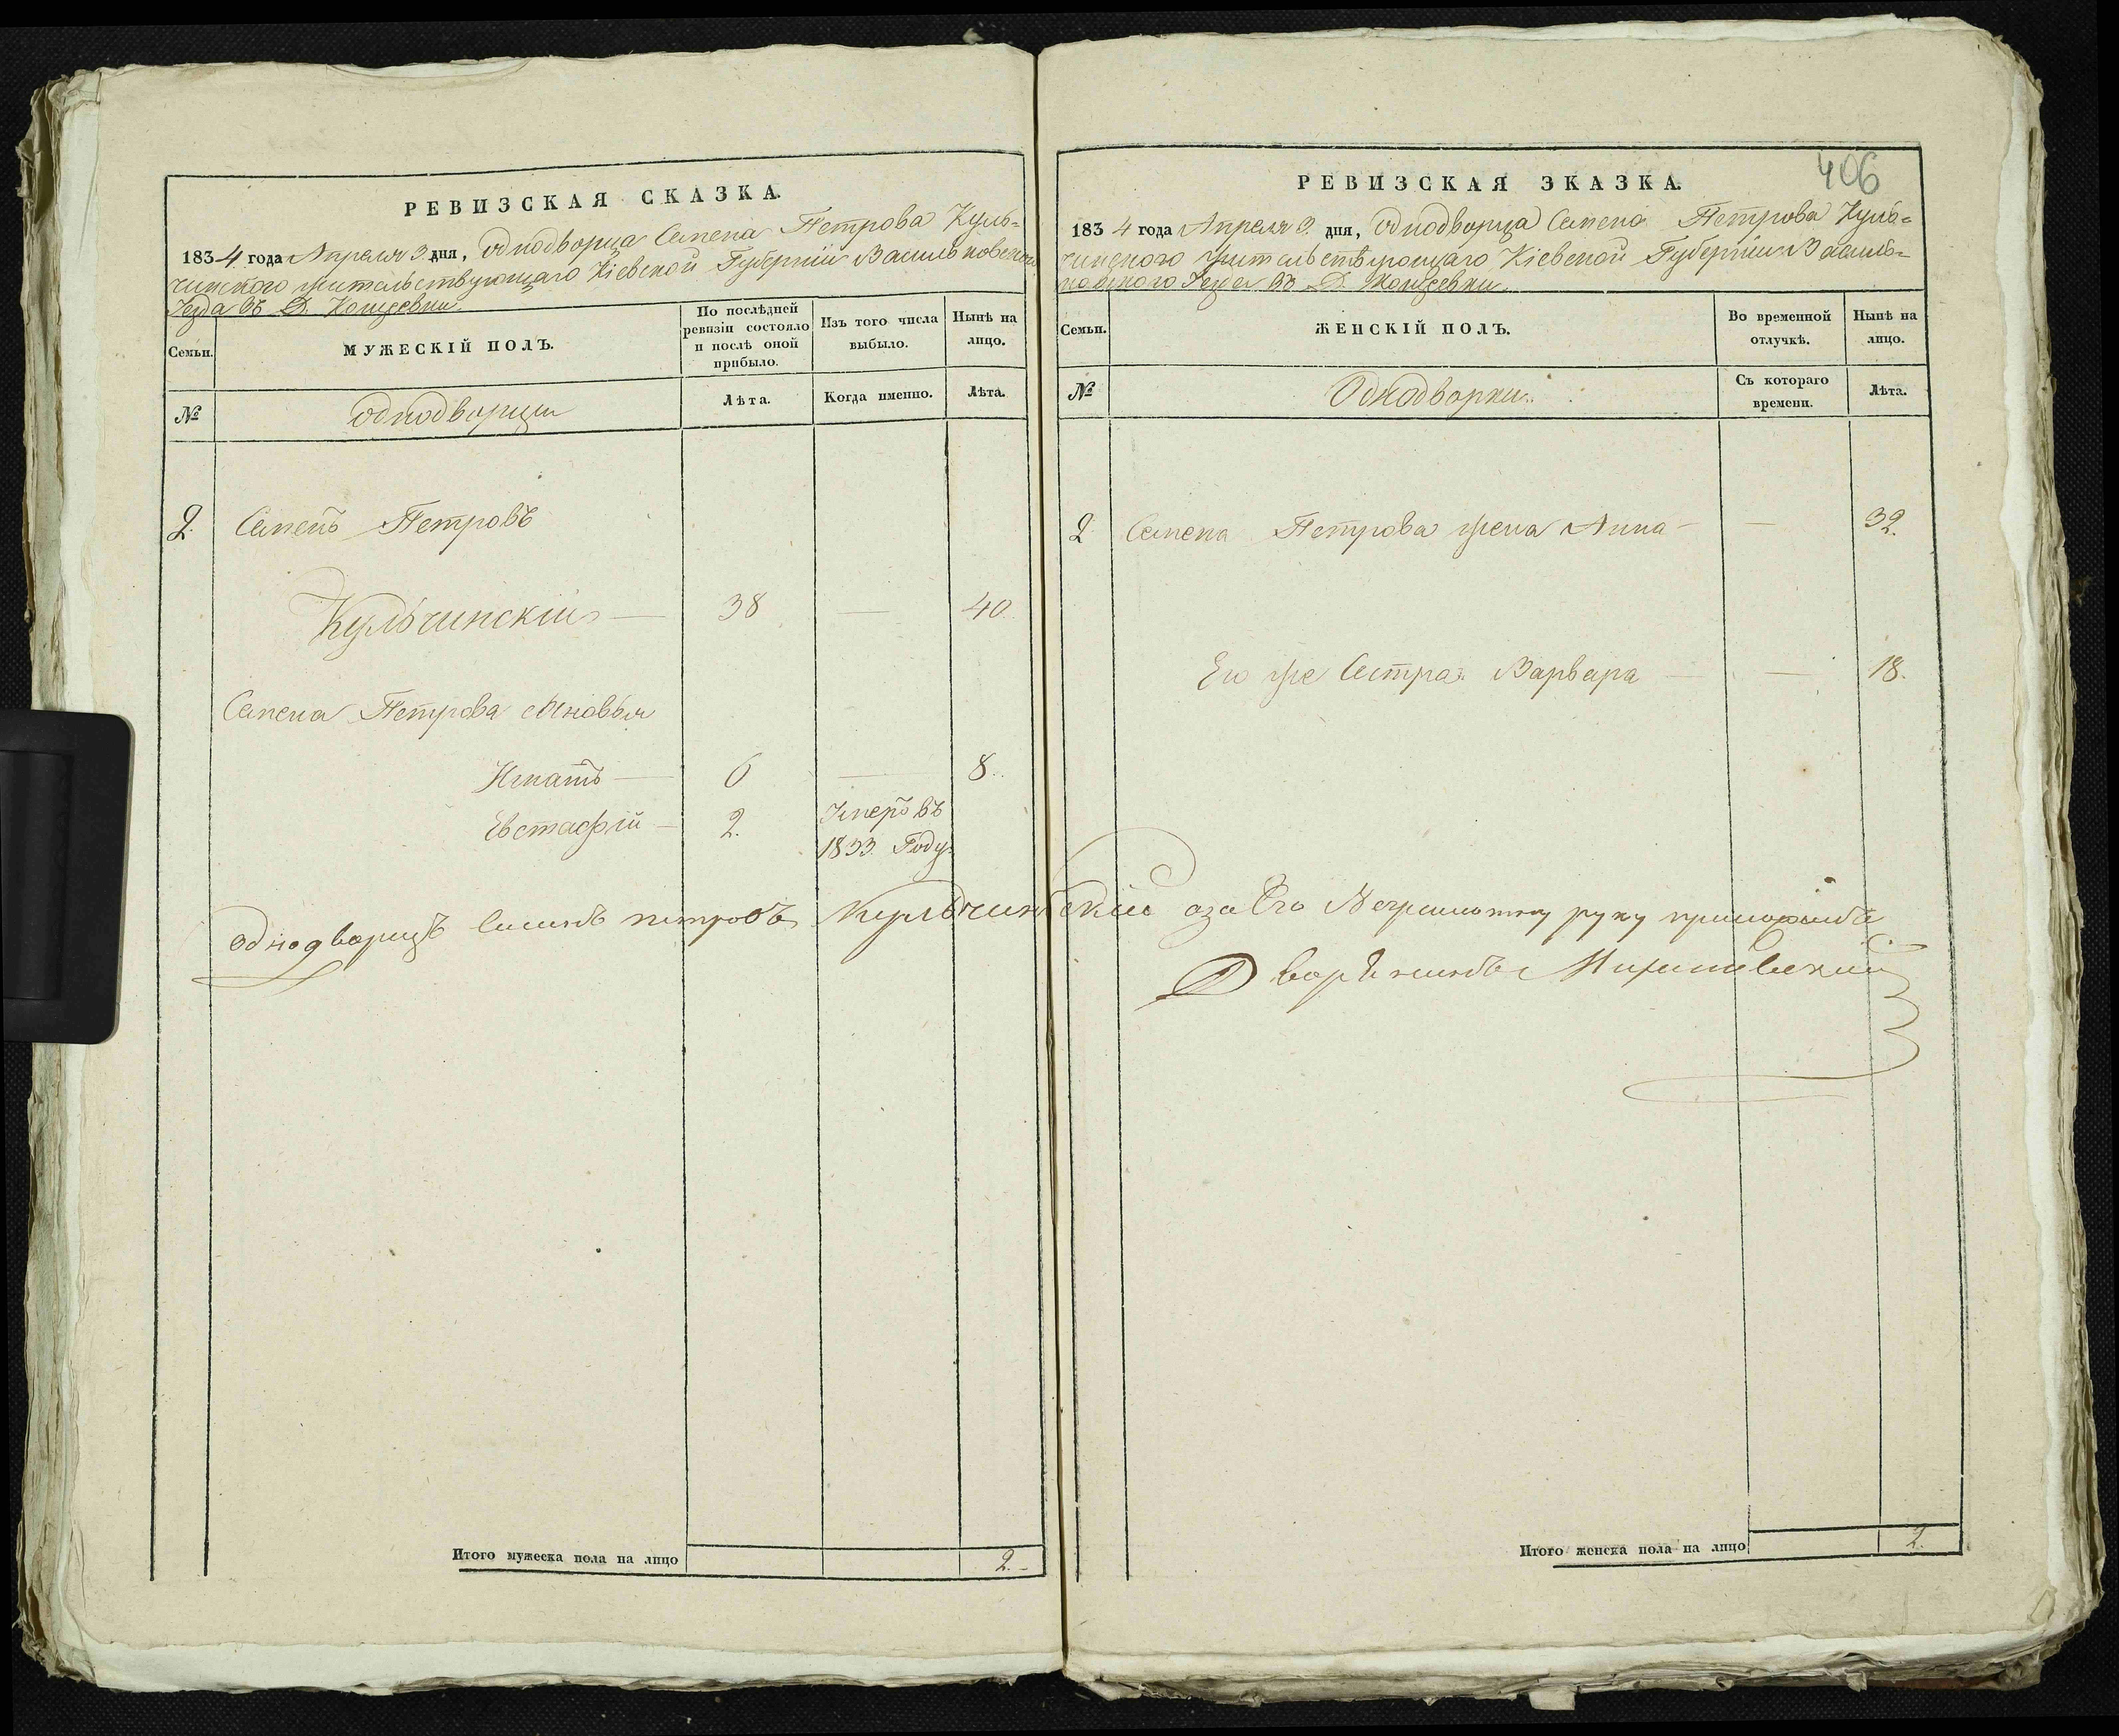 РЕВИЗСКАЯ СКАЗКА.
1834 года Апреля 3. дня, однодворца Семена Петрова Куль=
чинского жительствующаго Кіевской Губерніи Васильковскаго
Уезда въ Д.
Семьи.
МУЖЕСКІЙ ПОЛЪ.
По послѣдней
ревизіи состояло
и послѣ оной
прибыло.
Изъ того числа
выбыло.
Нынѣ на
лицо.
№
однодворцы
Лѣта.
Когда именно.
Лѣта.
2. Семенъ Петровъ
Кульчинскій — 38 — 40.
Семена Петрова сыновья
Игнатъ — 6 — 8.
Евстафій — 2. Умеръ въ
1833. Году.
Итого мужеска пола на лицо 2.-
406
РЕВИЗСКАЯ ЗКАЗКА.
1834 года Апреля 3. дня, однодворца Семена Петрова Куль=
чинского жительствующаго Кіевской Губерніи Василь=
ковского Уезда въ Д.
Семьи.
ЖЕНСКІЙ ПОЛЪ.
Во временной
отлучкѣ.
Нынѣ на
лицо.
№
Однодворки.
Съ котораго
времени.
Лѣта.
2 Семена Петрова жена Анна — — 32.
Его же Сестра Варвара — — 18.
однодворецъ Семенъ петровъ Кульчинский аза Его Неграмотну руку приложилъ
Дворянинъ
Итого женска пола на лицо 2.